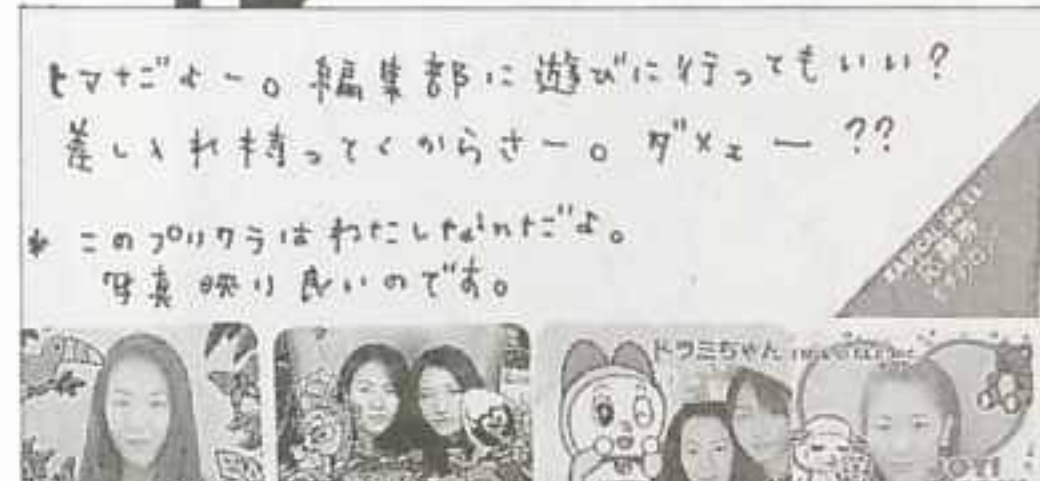 ヒマだよー。編集部に遊びに行ってもいい?
差し入れ持ってくからさー。ダメェー??
* このプリクラはわたしたちなんだよ。
写真映り良いのです。
ドラミちゃん